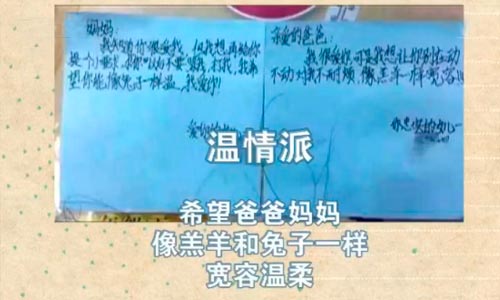 妈妈:
我知道你很爱我,但我想再给你
提个小
要骂我,打我,我希
望你能像兔子一样温,我爱你!
爱你的
亲爱的爸爸:
我很爱你,可是我想让你别在动
不动对我不耐烦,像羔羊一样宽容
温情派
希望爸爸妈妈
像羔羊和兔子一样
宽容温柔